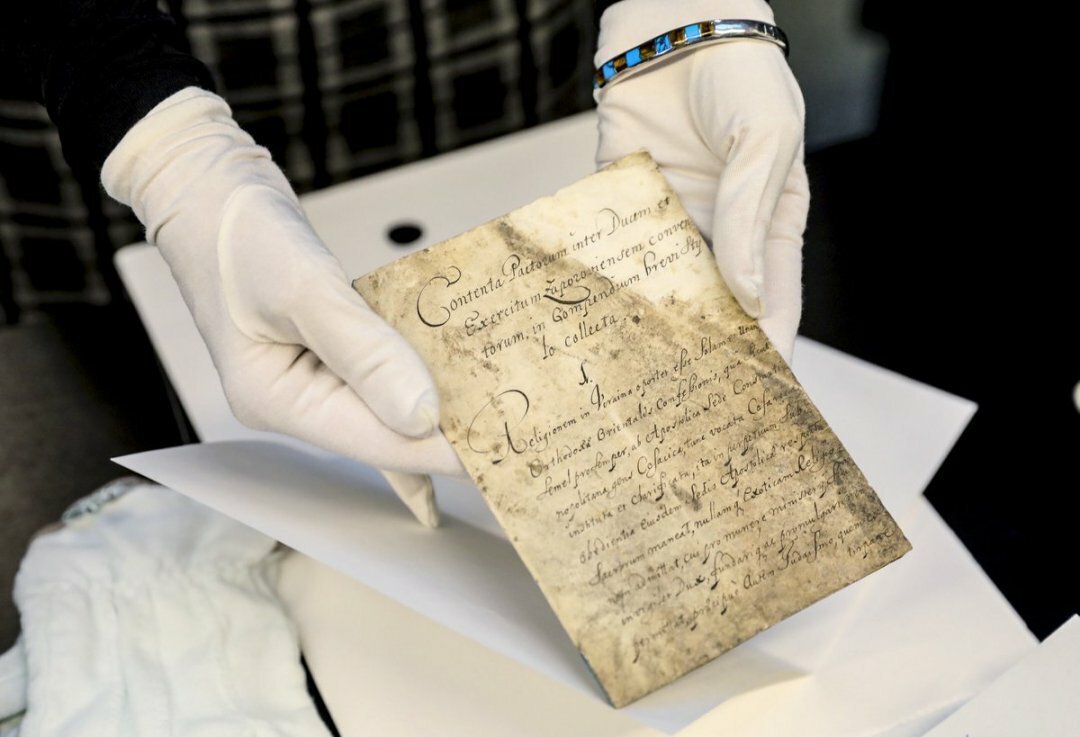 Contenta Pactorum inter Ducem et
Exercitum Zaporoviensem conven
torum, in Compendium brevi Sty
lo collecta.
1.
Religionem in Ucraina oportet esse Solam Unam
Orthodoxæ Orientalis Confessionis, qua
semel pro semper, ab Apostolica Sede Const
nopolitana gens Cosacica, tunc vocata Cosar
instituta et clarificata, ita in perpetuum
obedientia eiusdem Sedis Apostolicæ
Sacrorum maneat, nullamq́ Exoticam Religio
cui pro munere
Dux, fundari quæ promulgari
præcipuè autem Judaismo, quem